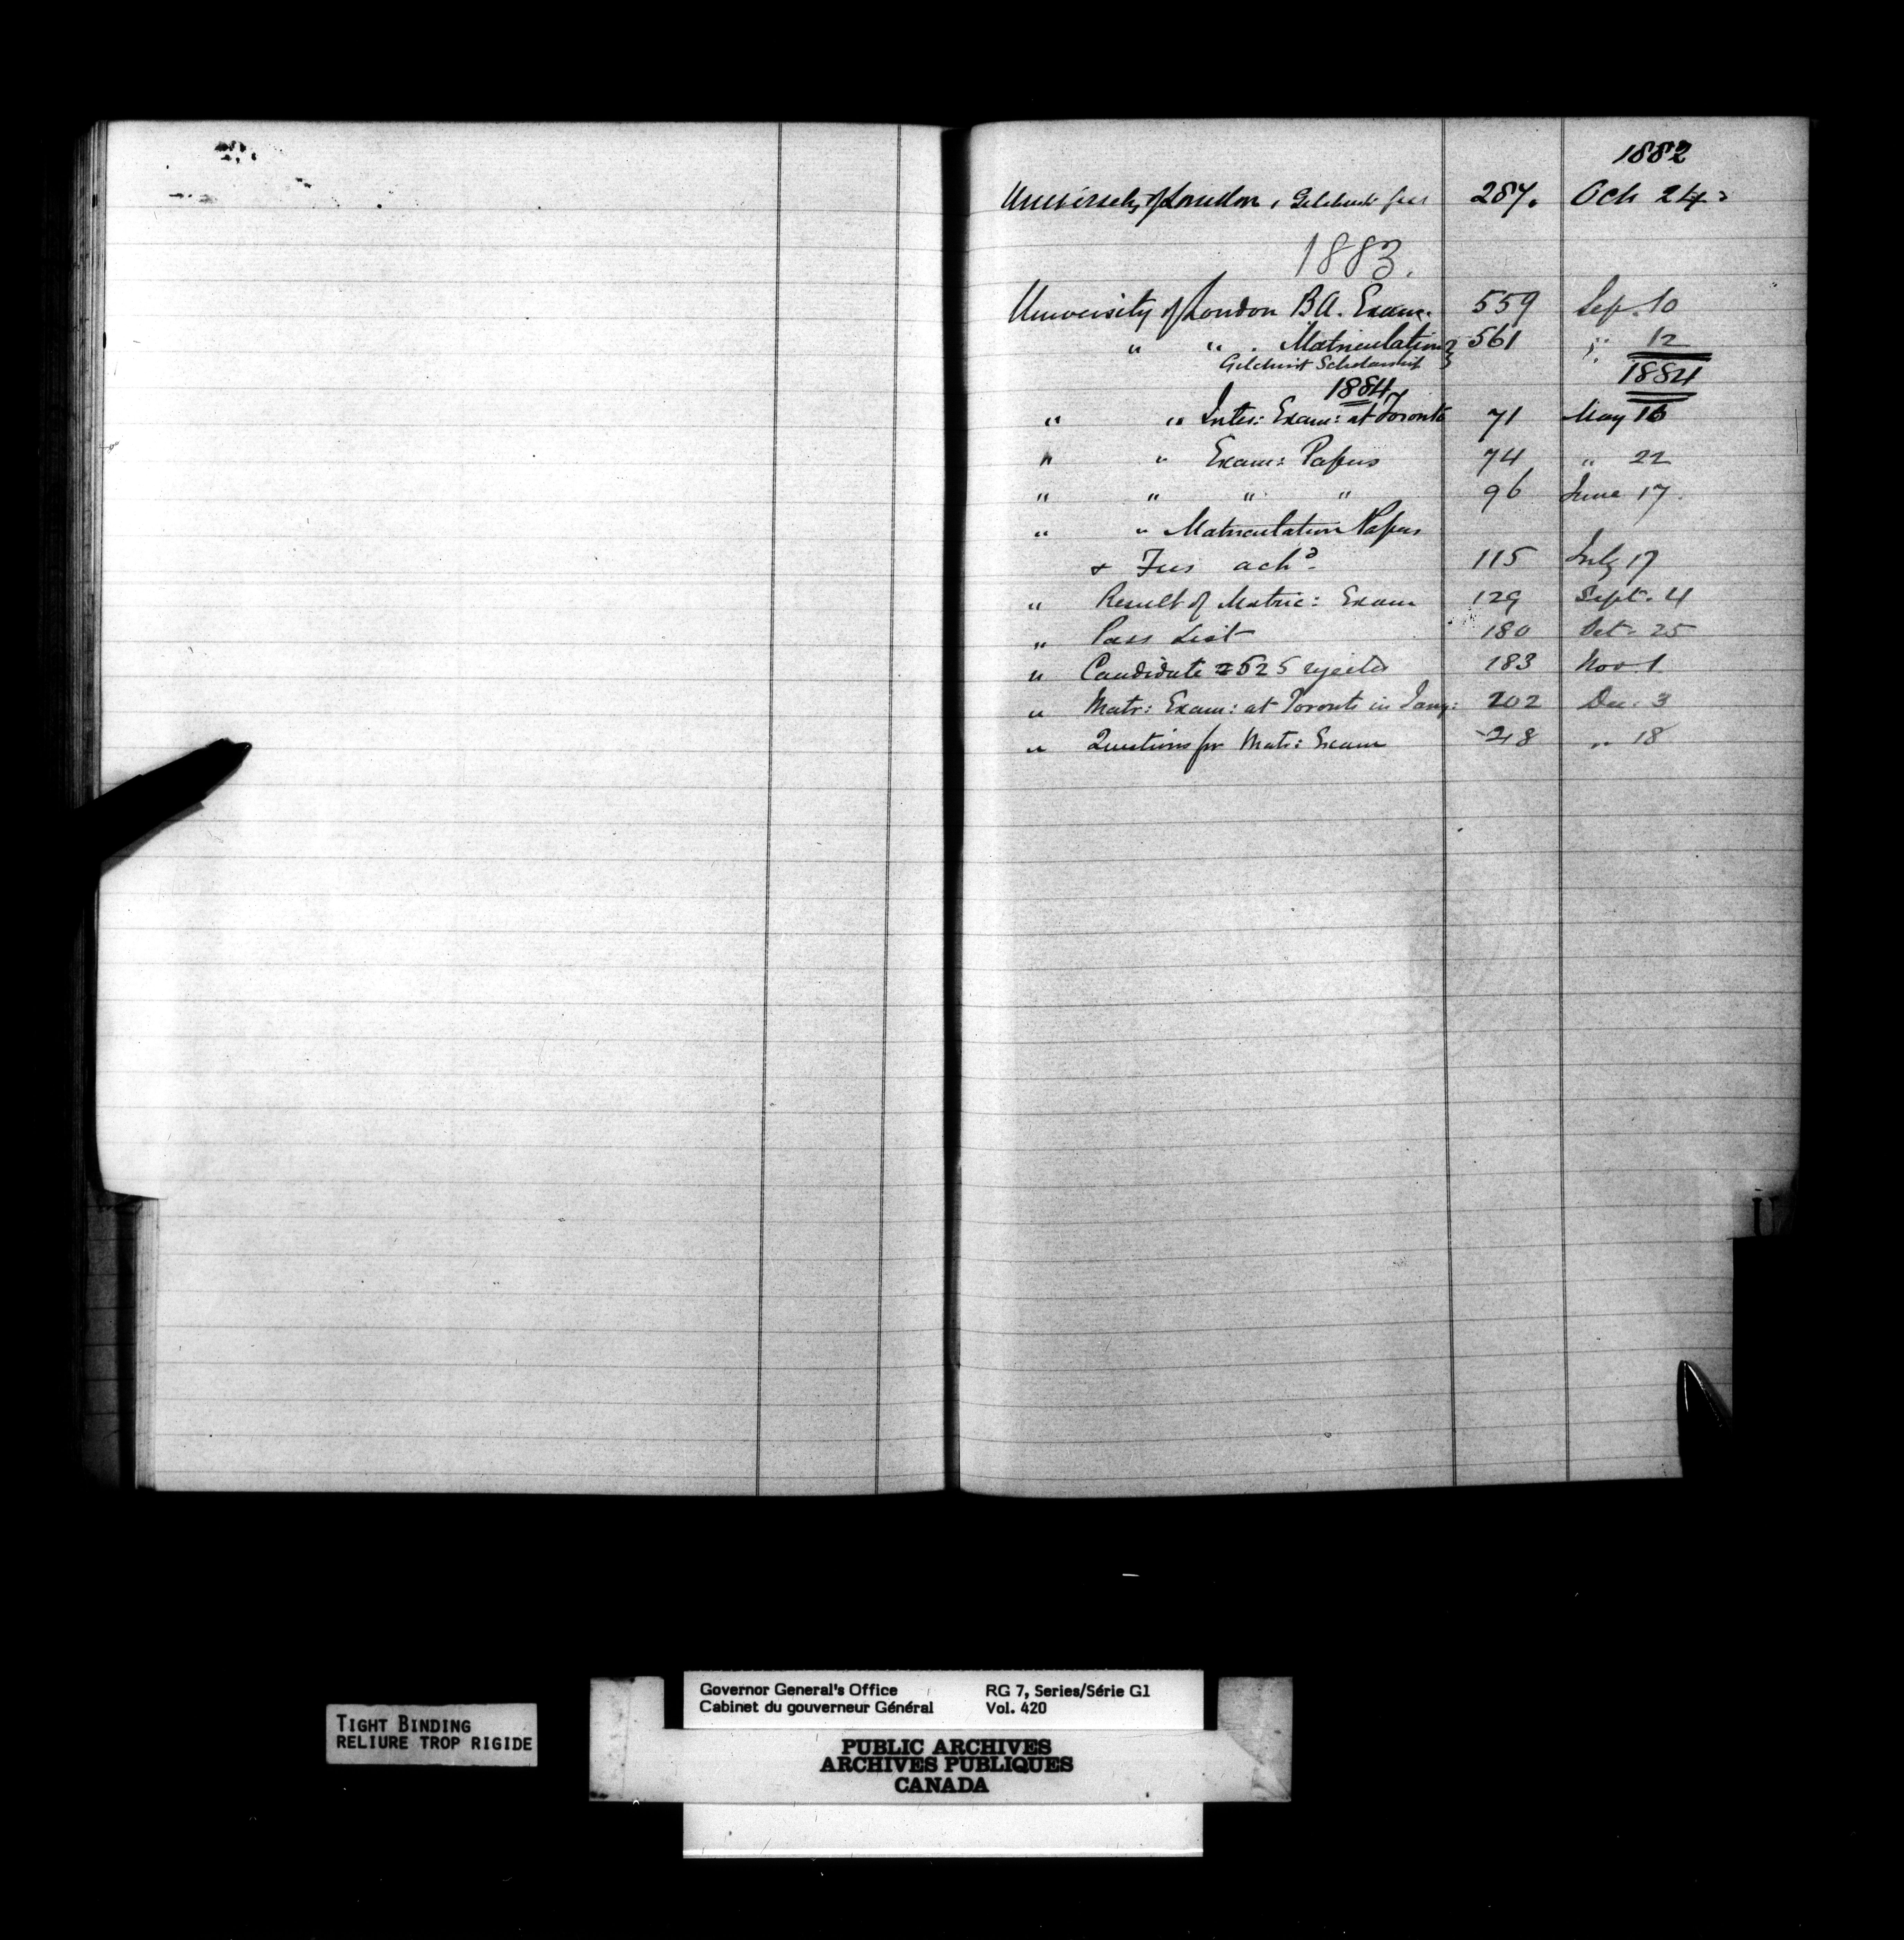 1882
University of London, Gilchrist fees 287. Oct 24
1883.
University of London B.A. Exam. 559 Sep. 10
" " . Matriculation } 561 " 12
Gilchrist Scholarship
1884
1884
" " Inter: Exam: at Toronto 71 May 16
" " Exam: Papers 74 " 22
" " " " 96 June 17.
" " Matriculation Papers
& Fees ackd. 115 July 17
" Result of Matric: Exam 129 Sept. 4
" Pass List 180 Oct. 25
" Candidate 525 rejected 183 Nov 1
" Matr: Exam: at Toronto in Jany: 202 Dec. 3
" Questions for Matr: Exam 218 " 18
U
TIGHT BINDING
RELIURE TROP RIGIDE
Governor General's Office RG 7, Series/Série G1
Cabinet du gouverneur Général Vol. 420
PUBLIC ARCHIVES
ARCHIVES PUBLIQUES
CANADA